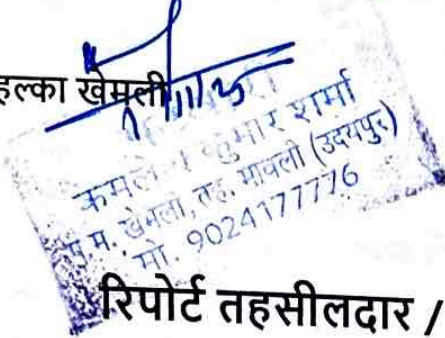 हल्का खेमली
11/25
कुमार शर्मा
प.म. खेमली, तह. मावली (उदयपुर)
मो. 9024177776
रिपोर्ट तहसीलदार /